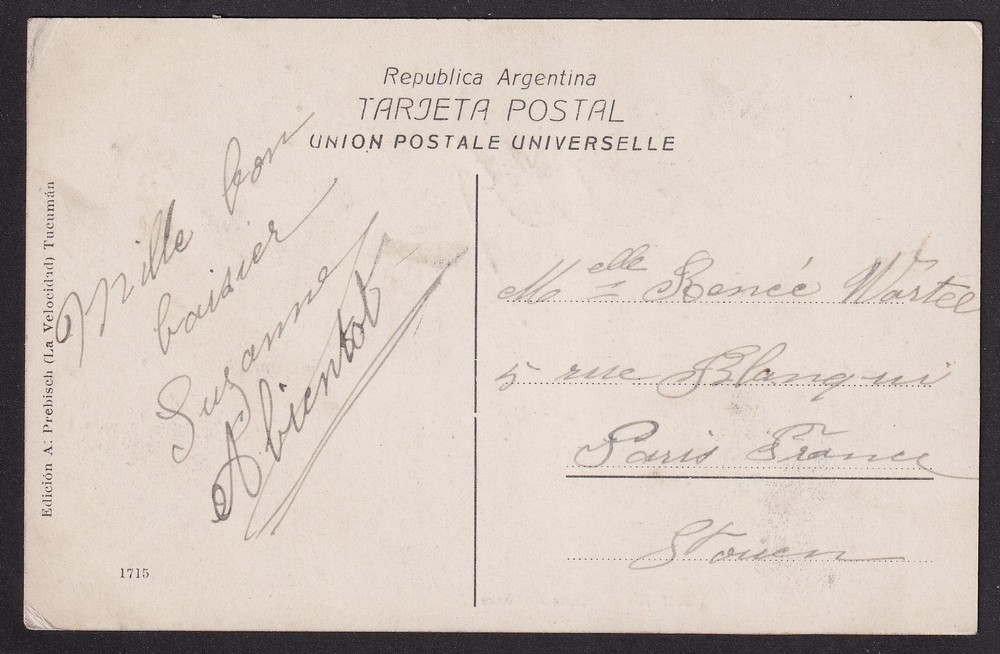 Republica Argentina
TARJETA POSTAL
UNION POSTALE UNIVERSELLE
Edición A: Prebisch (La Velocidad) Tucumán
Mille bon
baisier
Suzanne
Abientot
Melle Renée Wartel
5 rue Blanqui
Paris France
St Ouen
1715